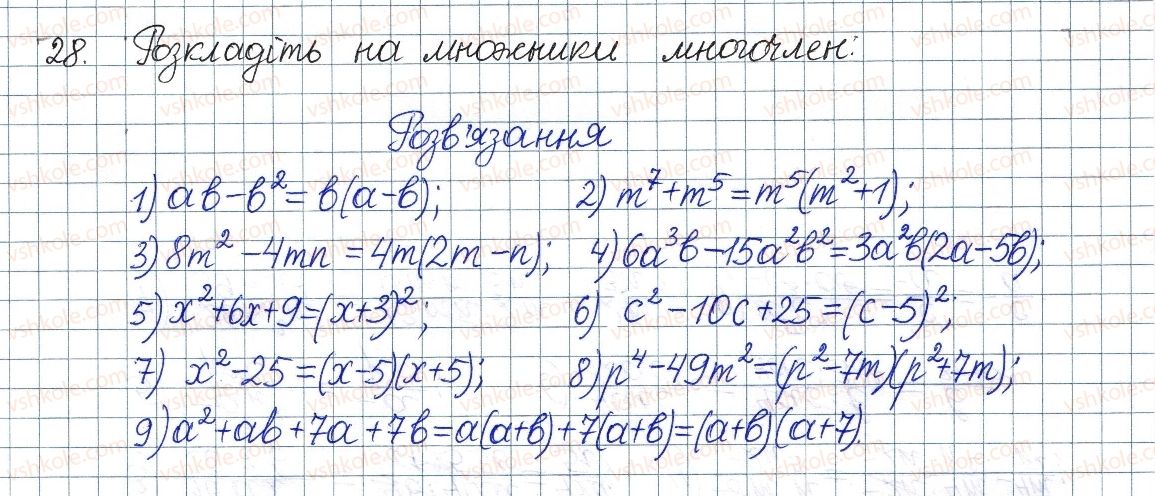 28. Розкладіть на множники многочлен:
Розв'язання
1) ab-b²=b(a-b); 2) m⁷+m⁵=m⁵(m²+1);
3) 8m²-4mn=4m(2m-n); 4) 6a³b-15a²b²=3a²b(2a-5b);
5) x²+6x+9=(x+3)²; 6) c²-10c+25=(c-5)²;
7) x²-25=(x-5)(x+5); 8) p⁴-49m²=(p²-7m)(p²+7m);
9) a²+ab+7a+7b=a(a+b)+7(a+b)=(a+b)(a+7).